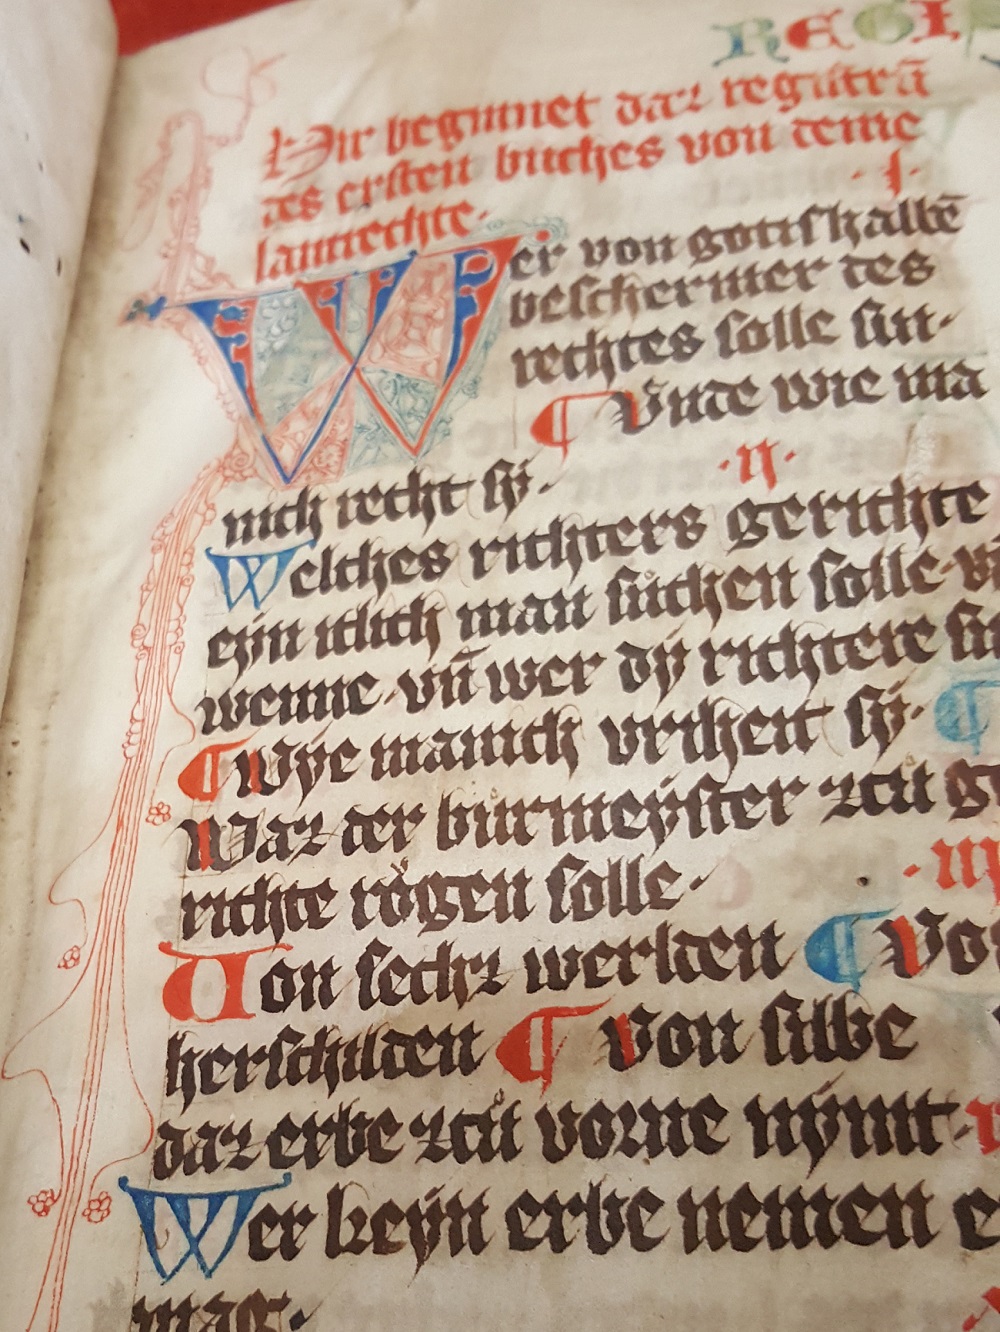 REGIS
Hir begynnet daz registrū
des ersten buches von deme
lantrechte.
·I·
Wer von gotis halbē
beschermer des
rechtes solle sin·
¶ Vnde wie ma
·ij·
nich recht sy·
Welches richters gerichte
eyn itlich man suͦchen solle·vn̄
wenne·vn̄ wer dy richtere sin
¶ Wye manich vriheit sy· ¶
Waz der buͦrmeyster zcuͦ ge
richte roͤgen solle·
·iij
Von sechz werlden ¶ Von
herschilden ¶ Von silbe
daz erbe zcuͦ vorne nymt·
Wer keyn erbe nemen e
mag·